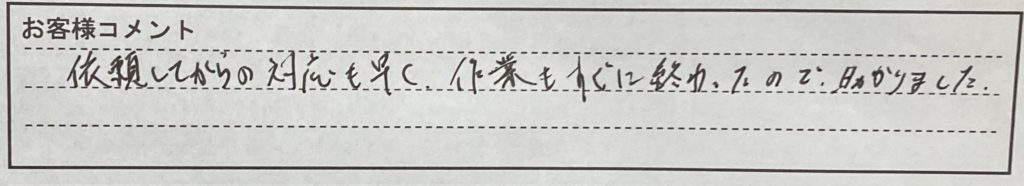 お客様コメント
依頼してからの対応も早く、作業もすぐに終わったので、助かりました。